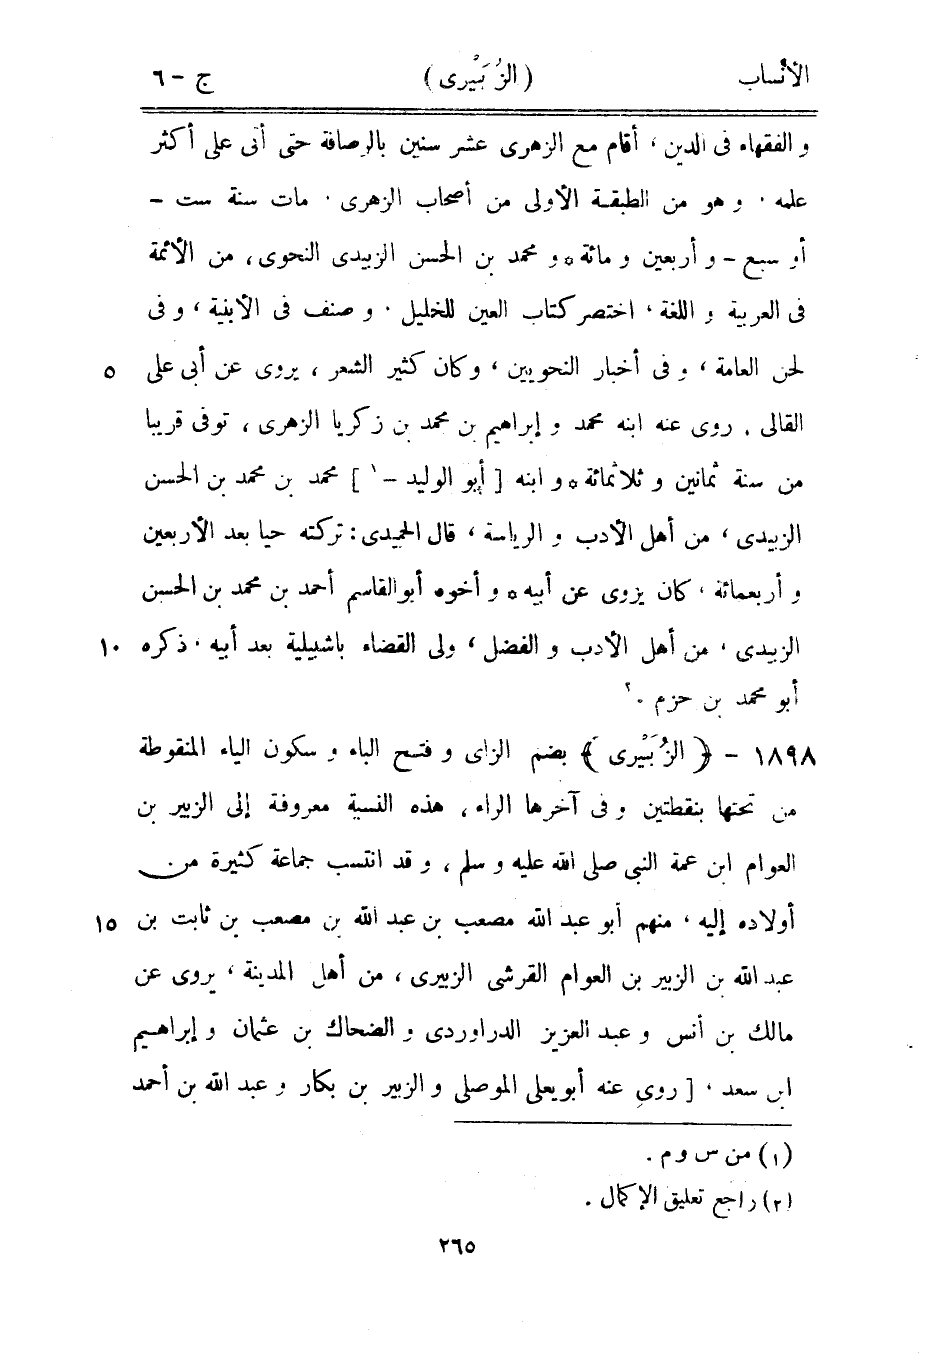 الأنساب (الزُّبَيْرى) ج - ٦
و الفقهاء فى الدين ، أقام مع الزهرى عشر سنين بالرصافة حتى أتى على أكثر
علمه . و هو من الطبقة الأولى من أصحاب الزهرى . مات سنة ست -
أو سبع - و أربعين و مائة * و محمد بن الحسن الزبيدى النحوى ، من الأئمة
فى العربية و اللغة ، اختصر كتاب العين للخليل . و صنف فى الأبنية ، و فى
لحن العامة ، و فى أخبار النحويين ، و كان كثير الشعر ، يروى عن أبى على ٥
القالى . روى عنه ابنه محمد و إبراهيم بن محمد بن زكريا الزهرى ، توفى قريبا
من سنة ثمانين و ثلاثمائة * و ابنه [ أبو الوليد - ١ ] محمد بن محمد بن الحسن
الزبيدى ، من أهل الأدب و الرياسة ، قال الحميدى : تركته حيا بعد الأربعين
و أربعمائة ، كان يروى عن أبيه * و أخوه أبو القاسم أحمد بن محمد بن الحسن
الزبيدى ، من أهل الأدب و الفضل ، ولى القضاء باشبيلية بعد أبيه . ذكره ١٠
أبو محمد بن حزم . ٢
١٨٩٨ - ﴿ الزُّبَيْرى ﴾ بضم الزاى و فتح الباء و سكون الياء المنقوطة
من تحتها بنقطتين و فى آخرها الراء ، هذه النسبة معروفة إلى الزبير بن
العوام ابن عمة النبى صلى الله عليه و سلم ، و قد انتسب جماعة كثيرة من
أولاده إليه ، منهم أبو عبد الله مصعب بن عبد الله بن مصعب بن ثابت بن ١٥
عبد الله بن الزبير بن العوام القرشى الزبيرى ، من أهل المدينة ، يروى عن
مالك بن أنس و عبد العزيز الدراوردى و الضحاك بن عثمان و إبراهيم
ابن سعد ، [ روى عنه أبو يعلى الموصلى و الزبير بن بكار و عبد الله بن أحمد
(١) من س و م .
(٢) راجع تعليق الإكمال .
٢٦٥